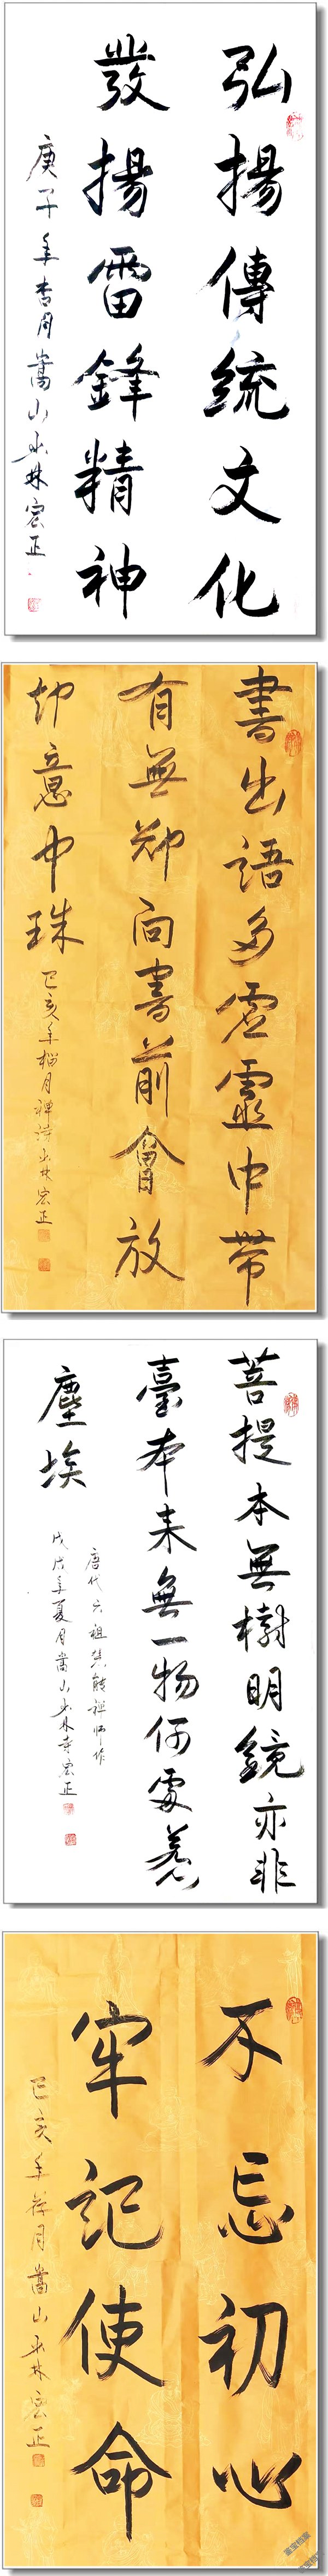 弘揚傳統文化
發揚雷鋒精神
庚子年杏月嵩山少林宏正
書出語多虛虛中帶
有無却向書前會放
却意中珠
己亥年榴月禪詩少林宏正
菩提本無樹明鏡亦非
臺本来無一物何處惹
塵埃
唐代六祖慧能禪師作
戊戌年夏月嵩山少林寺宏正
不忘初心
牢記使命
己亥年荷月嵩山少林宏正